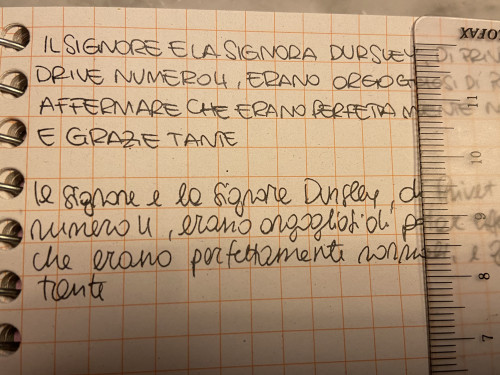 IL SIGNORE E LA SIGNORA DURSLEY DI PRIV
DRIVE NUMERO 4, ERANO ORGOGLIOSI DI P
AFFERMARE CHE ERANO PERFETTAMENTE N
E GRAZIE TANTE
Le signore e la signore Dursley, di Privet
numero 4, erano orgogliosi di
che erano perfettamente normali, e
tante
FILOFAX
11
10
9
8
7